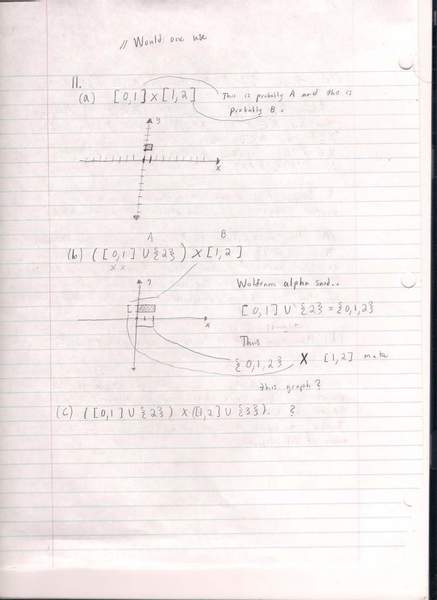 // Would one use
11.
(a) [0,1] x [1,2] This is probably A and this is
probably B.
y
x
A B
(b) ([0,1] ∪ {2}) X [1,2]
x x
y
x
Wolfram alpha said..
[0,1] ∪ {2} = {0,1,2}
Thus
{0,1,2} X [1,2] make
this graph?
(c) ([0,1] ∪ {2}) X ([1,2] ∪ {3}). ?